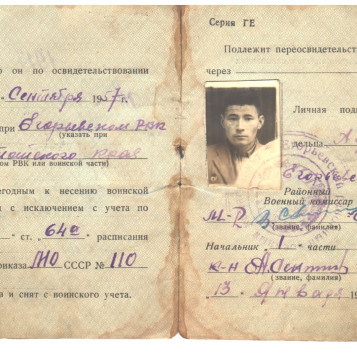 о он по освидетельствовании
Сентября 1957 г.
при Егорьевском РВК
(указать при
края
ом РВК или воинской части)
егодным к несению воинской
с исключением с учета по
" ст. 64а " расписания
риказа МО СССР № 110
и снят с воинского учета.
Серия ГЕ
Подлежит переосвидетельств
через
Личная под
дельца
Районный
Военный комиссар
м-р
(звание, фамилия)
Начальник 1 части
к-н
(звание, фамилия)
13 " Января 19